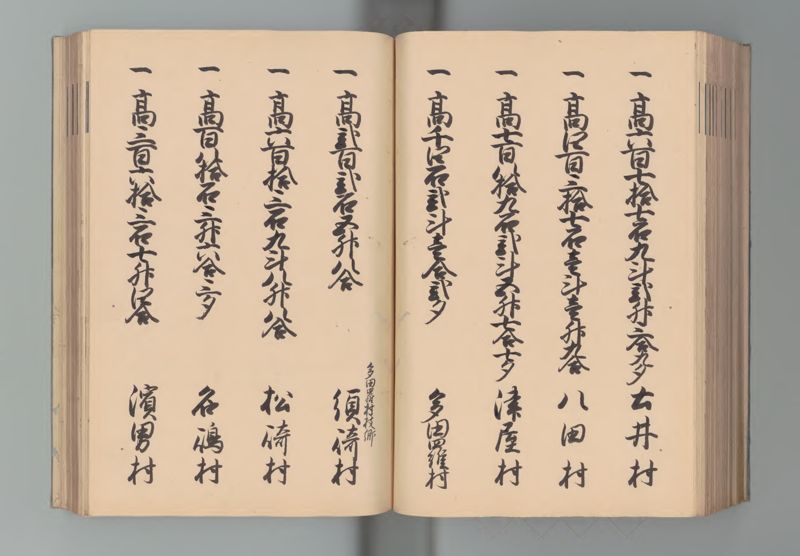 一 高六百七拾七石九斗弐升三合九夕 土井村
一 高四百三拾七石壱斗壱升九合 八田村
一 高七百八拾九石弐斗五升七合七夕 津屋村
一 高千四石弐斗壱合弐夕 多田羅村
多田羅村枝郷
一 高弐百弐石五升八合 須崎村
一 高六百拾三石九斗八升八合 松崎村
一 高百八拾石三升六合三夕 名嶋村
一 高三百六拾三石七升四合 濱男村